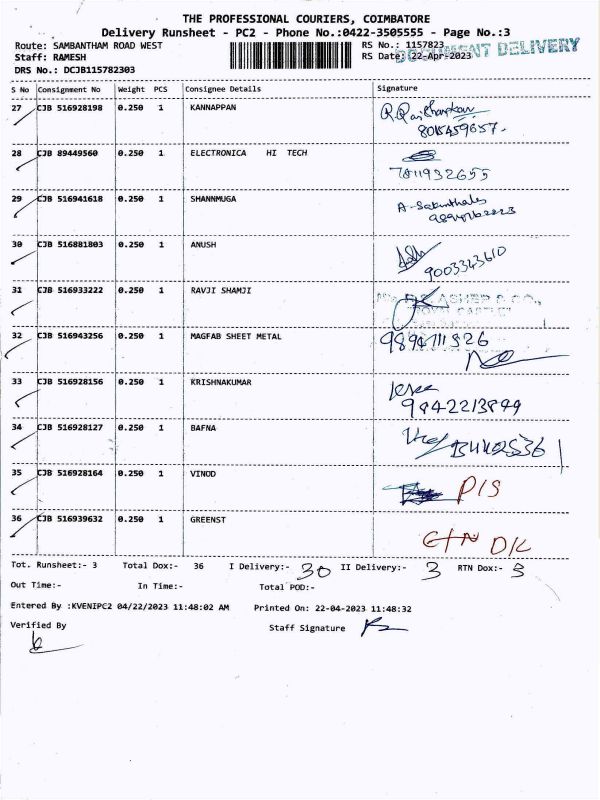 THE PROFESSIONAL COURIERS, COIMBATORE
Delivery Runsheet - PC2 - Phone No.:0422-3505555 - Page No.:3
Route: SAMBANTHAM ROAD WEST
RS No.: 1157823
DOCUMENT DELIVERY
Staff: RAMESH
RS Date: 22-Apr-2023
DRS No.: DCJB115782303
S No Consignment No Weight PCS Consignee Details Signature
27 CJB 516928198 0.250 1 KANNAPPAN
8015459657.
28 CJB 89449560 0.250 1 ELECTRONICA HI TECH
7811932655
29 CJB 516941618 0.250 1 SHANNMUGA
30 CJB 516881803 0.250 1 ANUSH
9003343610
31 CJB 516933222 0.250 1 RAVJI SHAMJI
ASHER & CO.,
32 CJB 516943256 0.250 1 MAGFAB SHEET METAL
33 CJB 516928156 0.250 1 KRISHNAKUMAR
34 CJB 516928127 0.250 1 BAFNA
35 CJB 516928164 0.250 1 VINOD
P/S
36 CJB 516939632 0.250 1 GREENST
Tot. Runsheet:- 3 Total Dox:- 36 I Delivery:- 30 II Delivery:- 3 RTN Dox:- 3
Out Time:- In Time:- Total POD:-
Entered By :KVENIPC2 04/22/2023 11:48:02 AM Printed On: 22-04-2023 11:48:32
Verified By Staff Signature